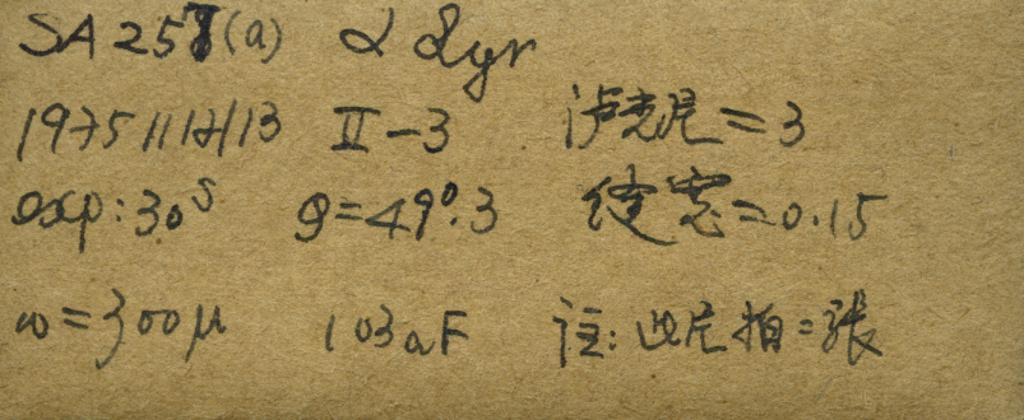 SA257(a) α Lyr
1975 11 12/13 II-3 滤光片=3
exp:30ˢ θ=49°.3 缝宽=0.15
w=300μ 103aF 注:此片拍二张